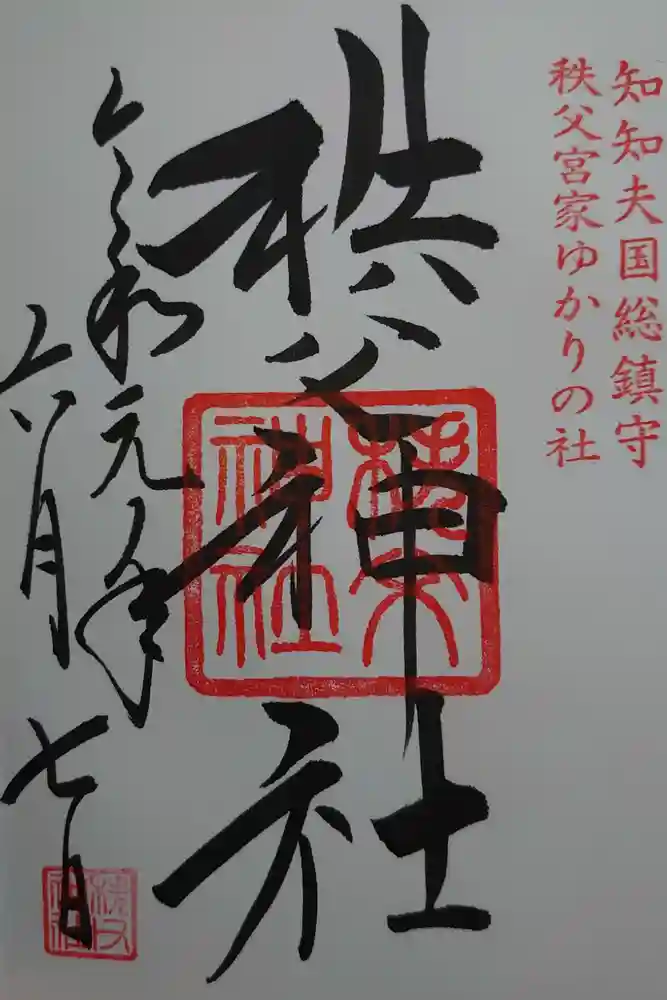 知知夫国総鎮守
秩父宮家ゆかりの社
秩父神社
秩父神社
令和元年
六月七日
秩父神社